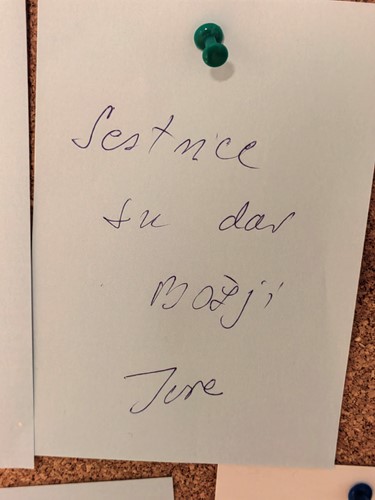 Sestrice
su dar
BOŽji
Jure